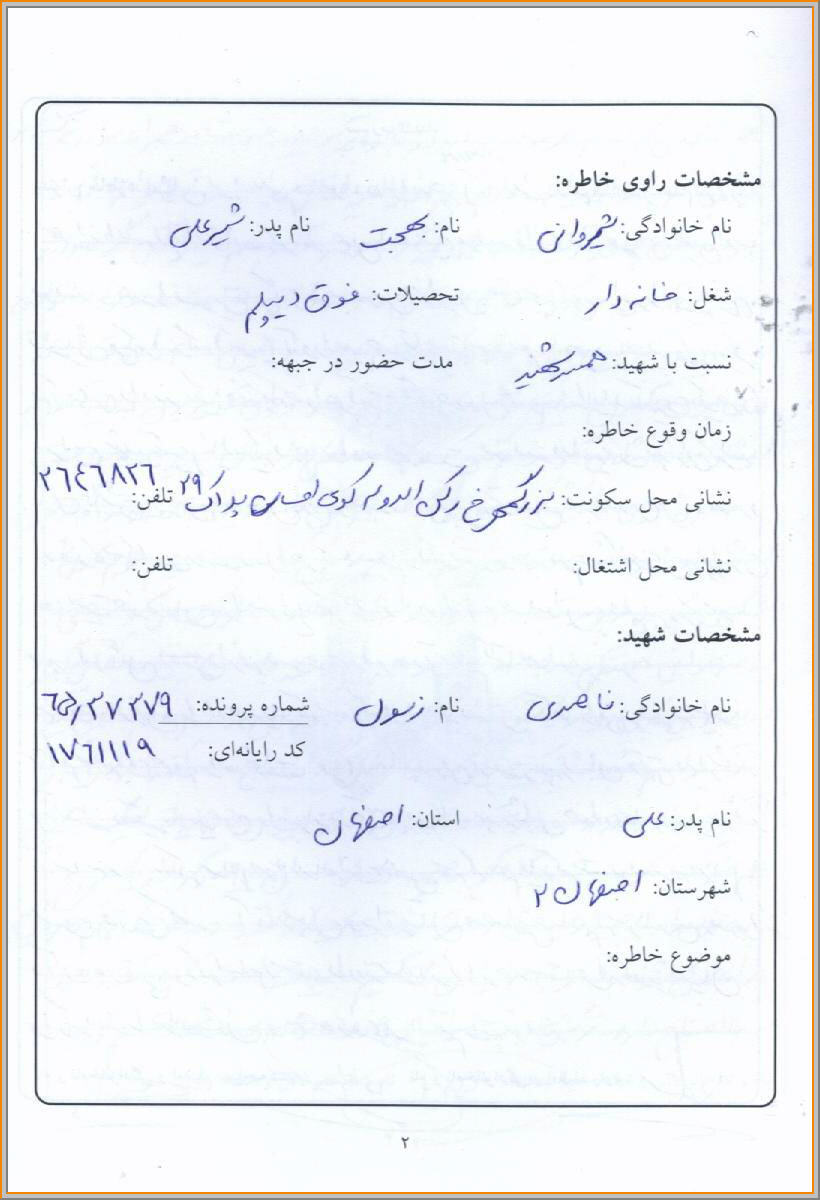 مشخصات راوی خاطره:
نام خانوادگی: شیروانی نام: بهجت نام پدر: شیرعلی
شغل: خانه دار تحصیلات: فوق دیپلم
نسبت با شهید: همسر شهید مدت حضور در جبهه:
زمان وقوع خاطره:
نشانی محل سکونت: بزرگمهر خ رکن الدوله کوی پلاک ۲۹ تلفن: ۲۶۴۶۸۲۶
نشانی محل اشتغال: تلفن:
مشخصات شهید:
نام خانوادگی: ناصری نام: رسول شماره پرونده:
کد رایانه‌ای: ۱۷۶۱۱۱۹
نام پدر: علی استان: اصفهان
شهرستان: اصفهان ۲
موضوع خاطره:
۲